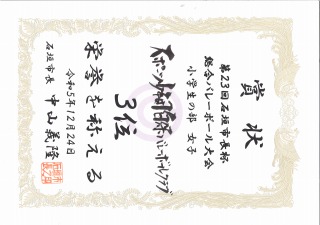 賞状
第23回石垣市長杯
総合バレーボール大会
小学生の部 女子
3位
栄誉を称える
令和5年12月24日
石垣市長 中山義隆